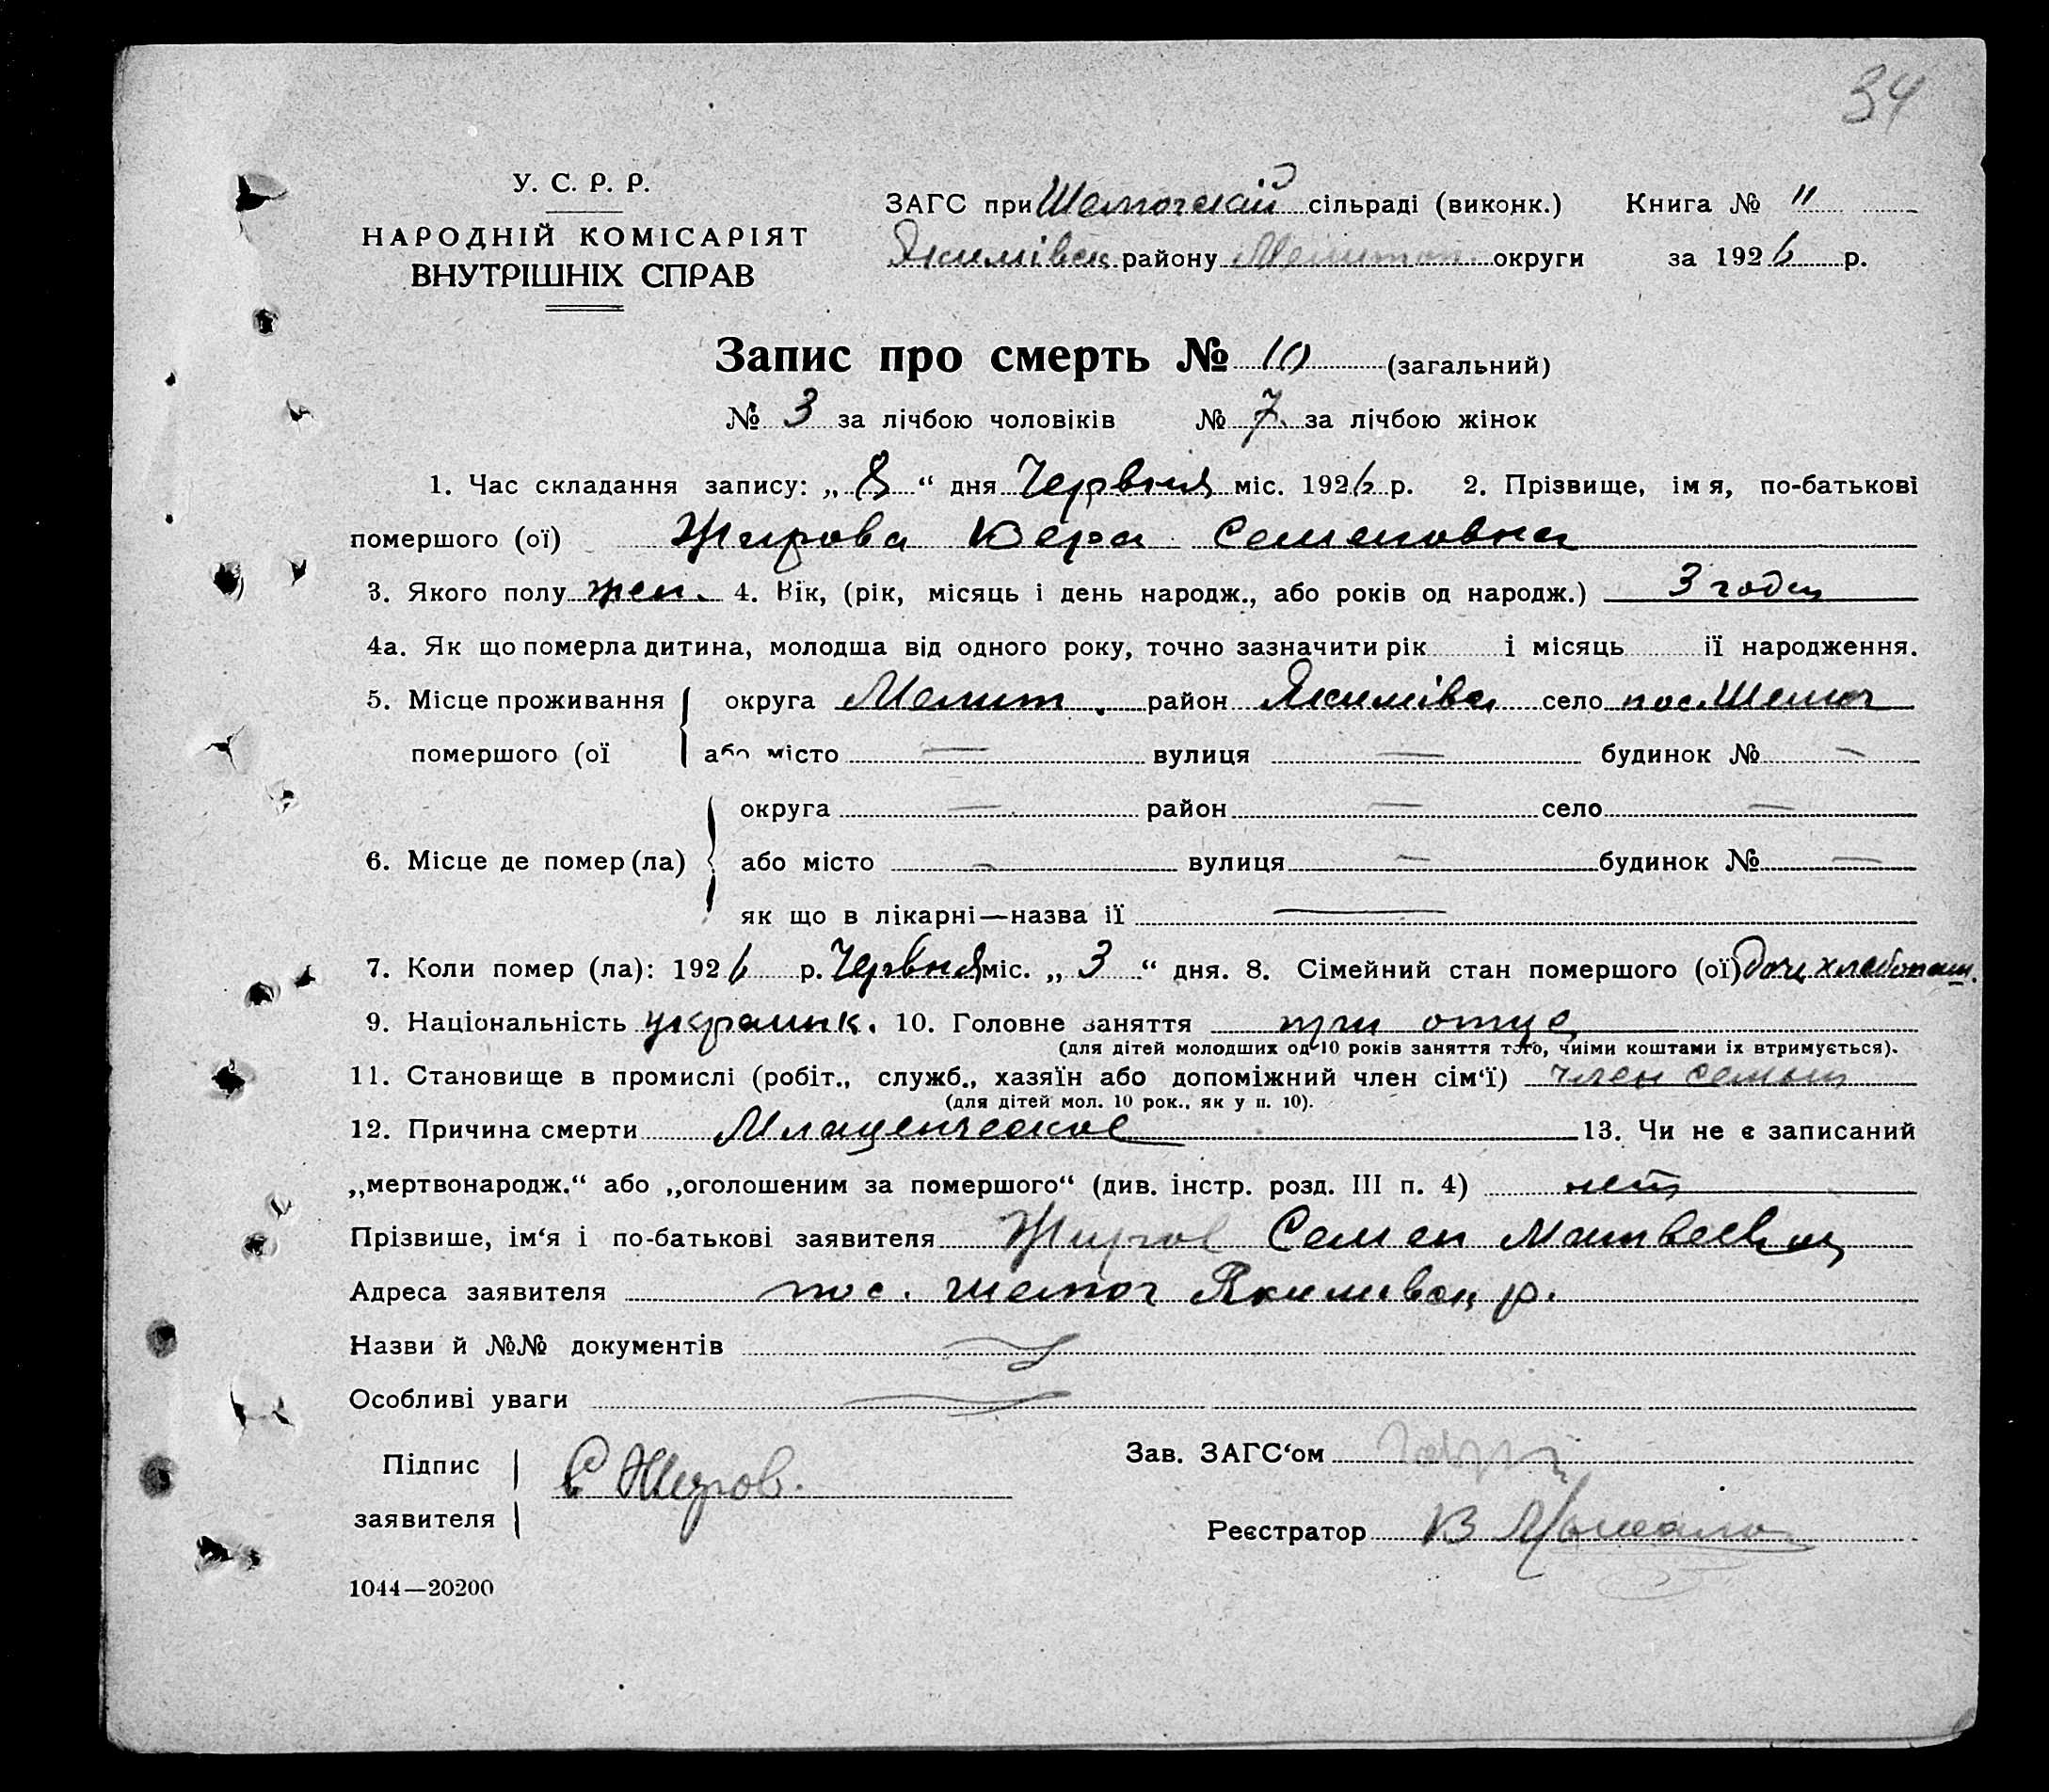 34
У. С. Р. Р.
НАРОДНІЙ КОМІСАРІЯТ
ВНУТРІШНІХ СПРАВ
ЗАГС при сільраді (виконк.) Книга № "
Якимівск району Мелитоп округи за 1926 р.
Запис про смерть № 10 (загальний)
№ 3 за лічбою чоловіків № 7 за лічбою жінок
1. Час складання запису: „ 8 “ дня Червня міс. 1926 р. 2. Прізвище, імя, по-батькові
помершого (ої) Жирова Вера Семеновна
3. Якого полу жен. 4. Вік, (рік, місяць і день народж., або років од народж.) 3 года
4а. Як що померла дитина, молодша від одного року, точно зазначити рік і місяць її народження.
5. Місце проживання округа Мелит. район Якимівск село пос. Шемот
помершого (ої або місто — вулиця — будинок № —
округа — район — село —
6. Місце де помер (ла) або місто — вулиця — будинок № —
як що в лікарні—назва її —
7. Коли помер (ла): 1926 р. Червня міс. „ 3 “ дня. 8. Сімейний стан помершого (ої) дочь хлебопаш.
9. Національність украинк. 10. Головне заняття при отце
(для дітей молодших од 10 років заняття того, чиїми коштами їх втримується).
11. Становище в промислі (робіт., служб., хазяїн або допоміжний член сім‘ї) член семьи
(для дітей мол. 10 рок., як у п. 10).
12. Причина смерти Младенческое 13. Чи не є записаний
„мертвонародж.“ або „оголошеним за помершого“ (див. інстр. розд. III п. 4) нет
Прізвише, ім‘я і по-батькові заявителя Жиров Семен Матвеевич
Адреса заявителя пос. Якимівск р.
Назви й №№ документів
Особливі уваги
Підпис
заявителя С Жиров.
Зав. ЗАГС‘ом
Реєстратор В
1044—20200